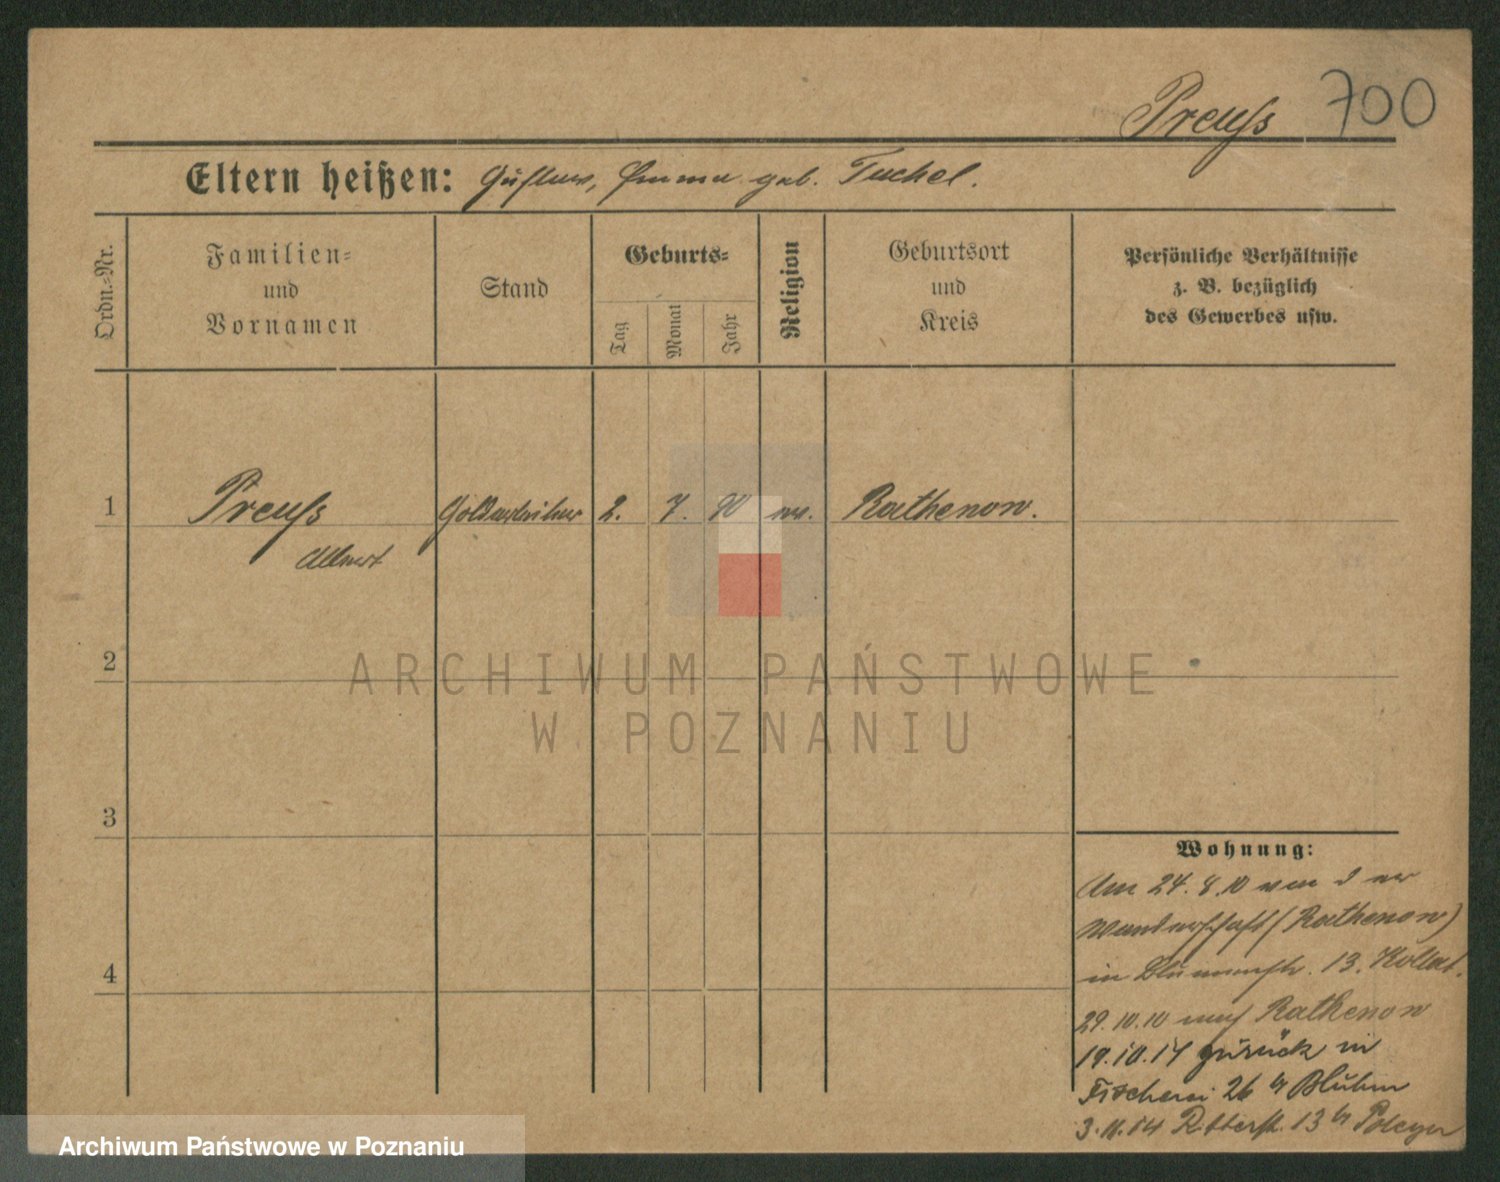 Preuß 700
Eltern heißen: Gustav, Emma geb. Tuchel.
Ordn.-Nr.
Familien-
und
Vornamen
Stand
Geburts-
Tag
Monat
Jahr
Religion
Geburtsort
und
Kreis
Persönliche Verhältnisse
z. B. bezüglich
des Gewerbes usw.
1 Preuß 2. 7. 90 ev. Rathenow.
Albert
2
ARCHIWUM PAŃSTWOWE
W POZNANIU
3
Wohnung:
Am 24.8.10 von der
Wanderschaft (Rathenow)
in Blumenstr. 13.
4
29.10.10 nach Rathenow
19.10.14 zurück in
Fischerei 26 b/ Bluhm
3.11.14 Ritterstr. 13 b/
Archiwum Państwowe w Poznaniu